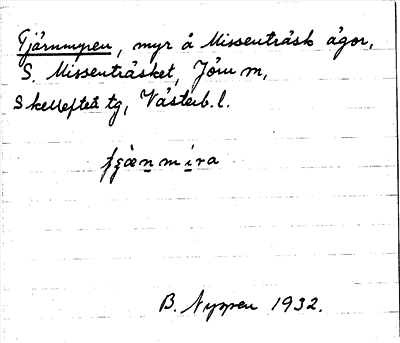 Tjärnmyren, myr å Missenträsk ägor,
S. Missenträsket, Jörn m,
Skellefteå tg, Västerb. l.
B. Nyman 1932.